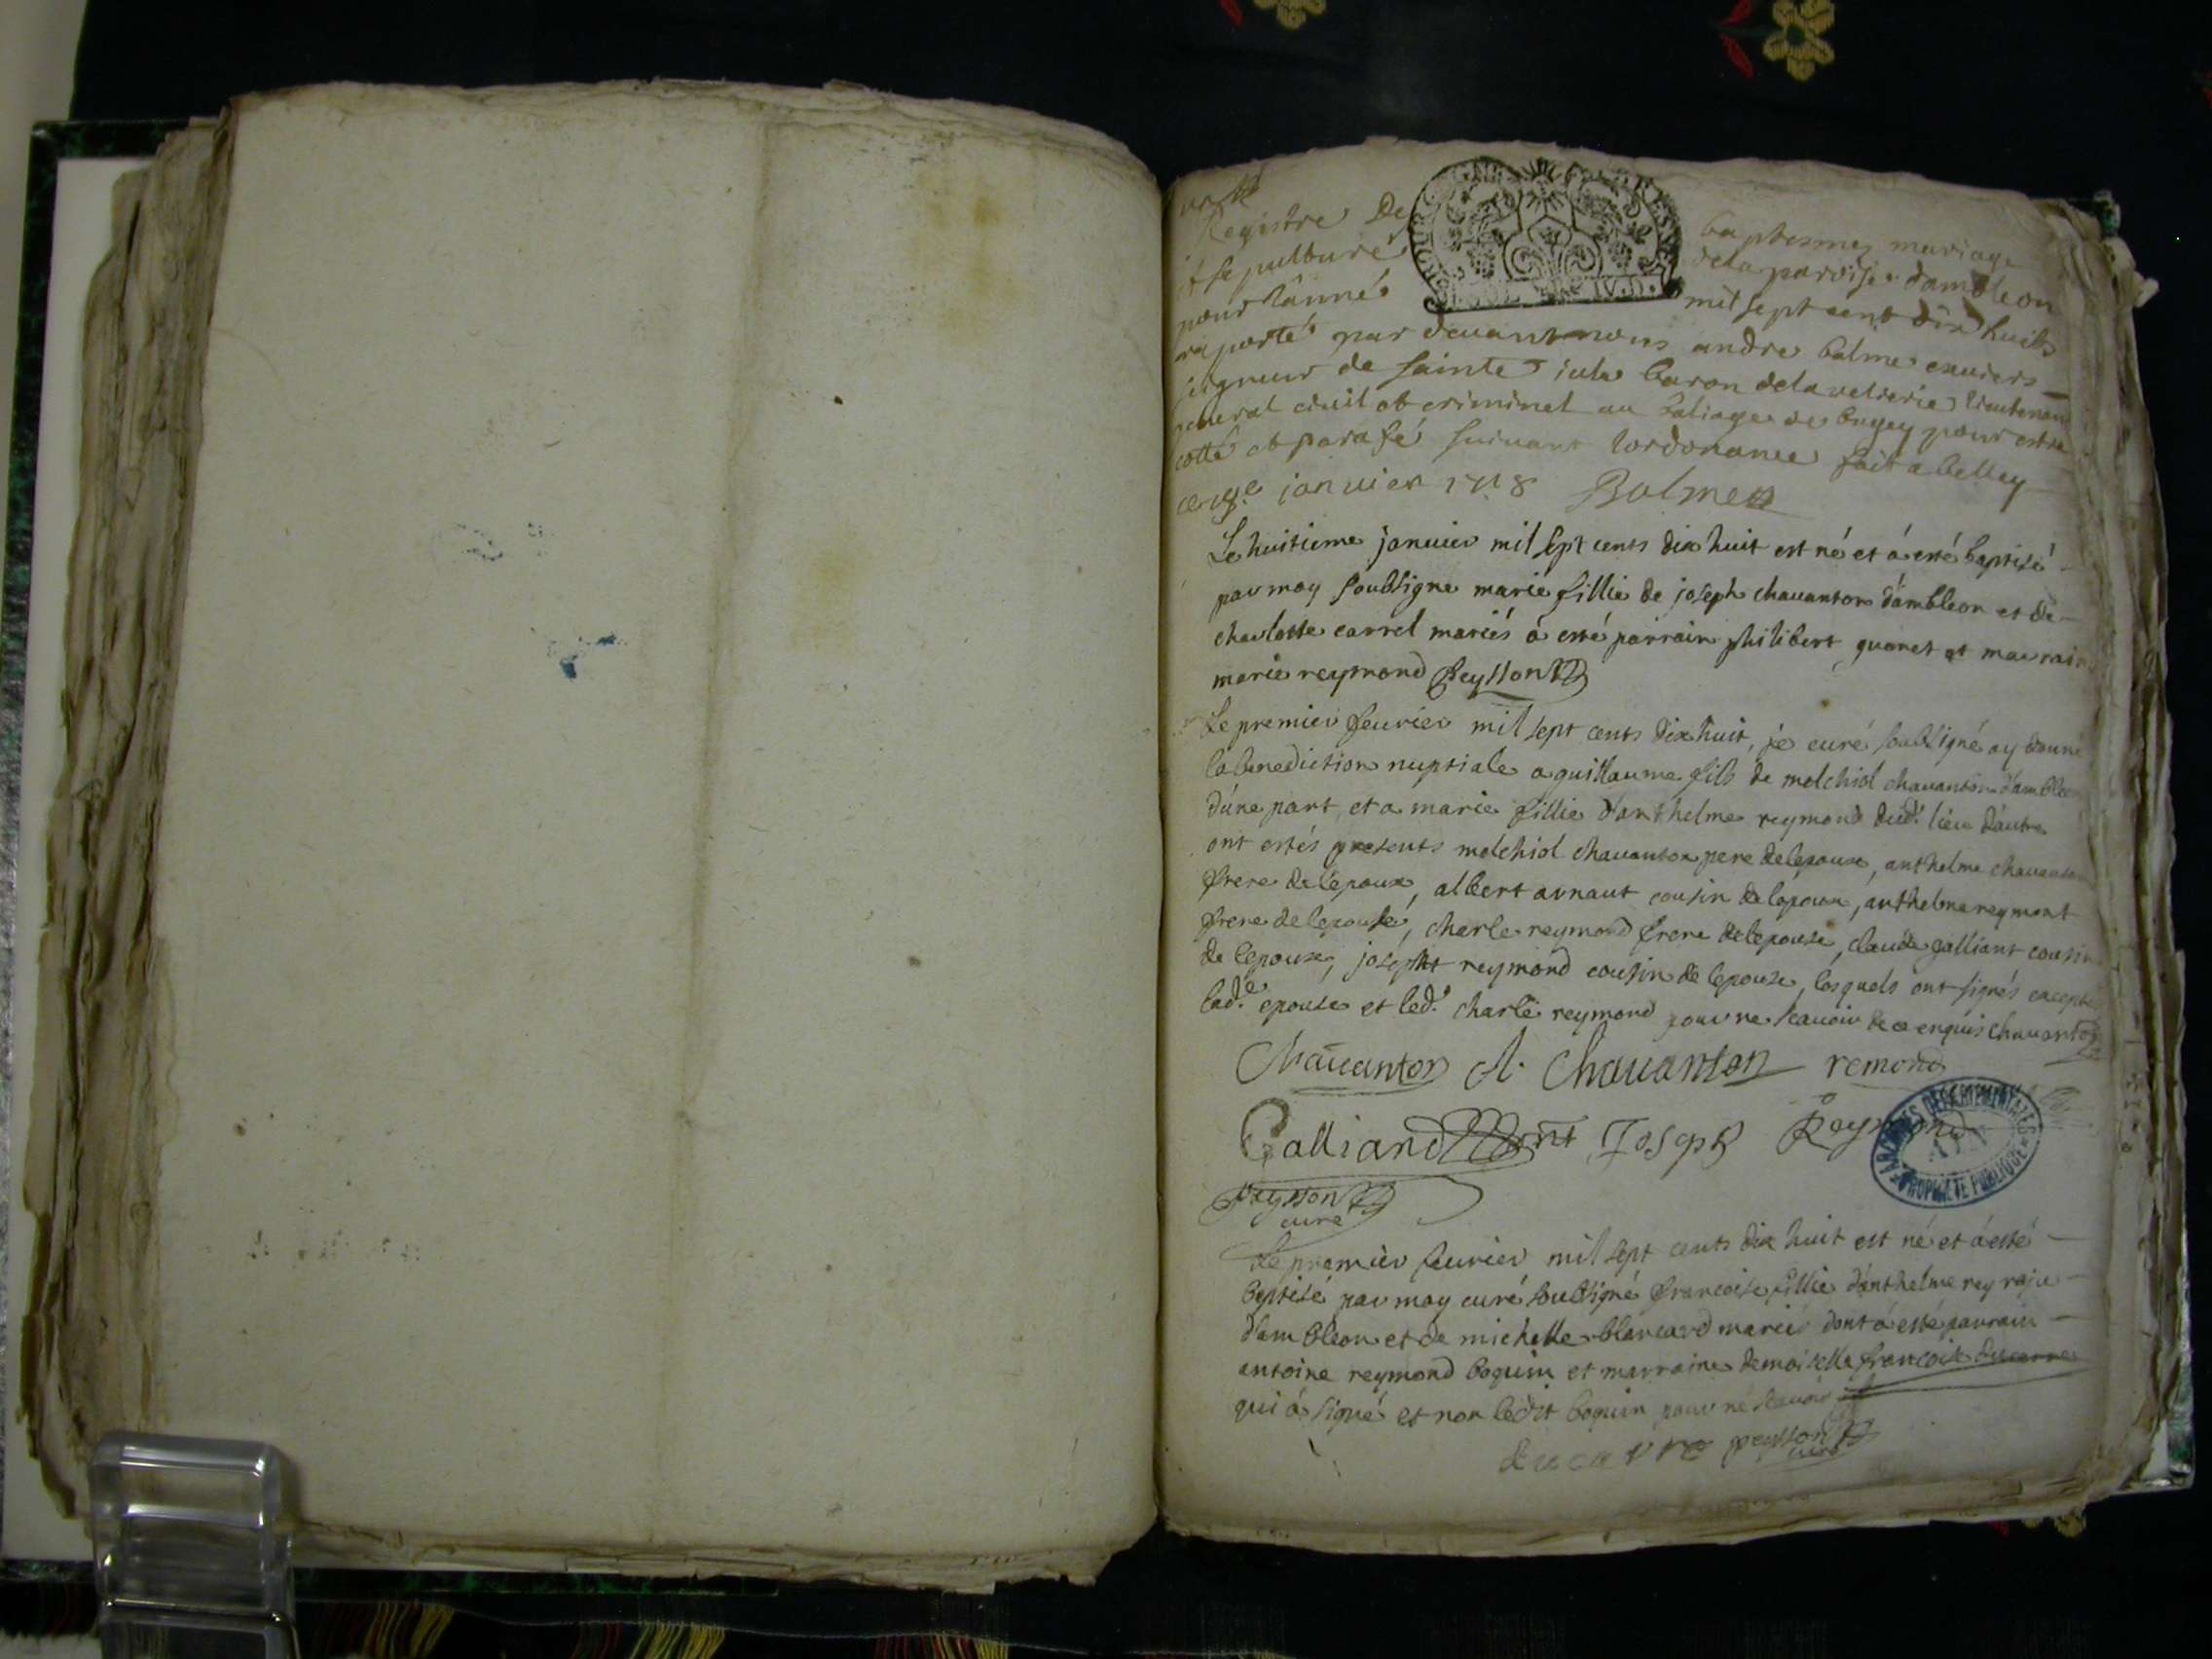 Registre Des baptesmes mariage
et sepulture de la paroisse dambleon
pour lânné mil sept cent dix huits
raporté par devant nous andre balme escuiers
seigneur de sainte iule baron de la velierie lieutenan
general civil et criminel au baliage de bugey pour estre
cotté et parafé suivant lordonance fait a belley
ce janvier 1718 Balme
Le huitieme janvier mil sept cents dix huit est né et á esté baptisé
par moy soubsigne marie fillie de joseph chavanton d'ambleon et de
charlotte carrel mariés á esté parrain philibert guoret et marrain
marie reymond Peysson
Le premier fevrier mil sept cents dix huit, je curé soubsigné ay donné
la benediction nuptiale a guillaume fils de melchiol chavanton d'ambleon
d'une part, et a marie fillie d'anthelme reymond dud.t lieu d'autre
ont estés presents melchiol chavanton pere de lepoux, anthelme chavanton
frere de l'epoux, albert arnaut cousin de lepoux, anthelme reymont
frere de lepouse, charle reymond frere de lepouse, claude galliant cousin
de lepouse, josepht reymond cousin de lepouse, lesquels ont signés excepté
lad.e epouse et led.t charle reymond pour ne scavoir de ce enquis chavanton
Chavanton A. Chavanton remond
Galliand Joseph Reymond
peysson
cure
ARCHIVES DÉPARTEMENTALES
AIN
PROPRIÉTÉ PUBLIQUE
Le premier fevrier mil sept cents dix huit est né et á esté
baptisé par moy curé soubsigné francoise fillie d'anthelme rey raju
d'ambleon et de michelle blancard mariés dont á esté parrain
antoine reymond boquin et marraine demoiselle francoise ducarre
qui á signé et non ledit boquin pour ne scavoir
ducarre peysson
curé